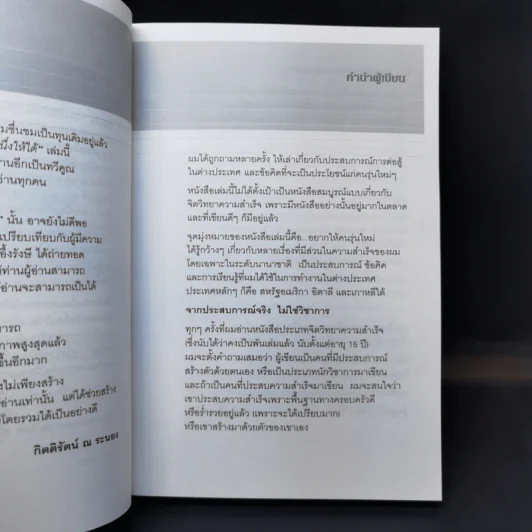 มชื่นชมเป็นทุนเดิมอยู่แล้ว
นึ่งให้ได้" เล่มนี้
านอีกเป็นทวีคูณ
อ่านทุกคน
" นั้น อาจยังไม่ดีพอ
เปรียบเทียบกับผู้มีความ
อึ้งรังษี ได้ถ่ายทอด
ท่านผู้อ่านสามารถ
อ่านจะสามารถเป็นได้
ารถ
ภาพสูงสุดแล้ว
ขึ้นอีกมาก
งไม่เพียงสร้าง
อ่านเท่านั้น แต่ได้ช่วยสร้าง
โดยรวมได้เป็นอย่างดี
กิตติรัตน์ ณ ระนอง
คำนำผู้เขียน
ผมได้ถูกถามหลายครั้ง ให้เล่าเกี่ยวกับประสบการณ์การต่อสู้
ในต่างประเทศ และข้อคิดที่จะเป็นประโยชน์แก่คนรุ่นใหม่ๆ
หนังสือเล่มนี้ไม่ได้ตั้งเป้าเป็นหนังสือสมบูรณ์แบบเกี่ยวกับ
จิตวิทยาความสำเร็จ เพราะมีหนังสืออย่างนั้นอยู่มากในตลาด
และที่เขียนดีๆ ก็มีอยู่แล้ว
จุดมุ่งหมายของหนังสือเล่มนี้คือ...อยากให้คนรุ่นใหม่
ได้รู้กว้างๆ เกี่ยวกับหลายเรื่องที่มีส่วนในความสำเร็จของผม
โดยเฉพาะในระดับนานาชาติ เป็นประสบการณ์ ข้อคิด
และการเรียนรู้ที่ผมได้ใช้ในการทำงานในต่างประเทศ
ประเทศหลักๆ ก็คือ สหรัฐอเมริกา อิตาลี และเกาหลีใต้
จากประสบการณ์จริง ไม่ใช่วิชาการ
ทุกๆ ครั้งที่ผมอ่านหนังสือประเภทจิตวิทยาความสำเร็จ
(ซึ่งนับได้ว่าคงเป็นพันเล่มแล้ว นับตั้งแต่อายุ 15 ปี)
ผมจะตั้งคำถามเสมอว่า ผู้เขียนเป็นคนที่มีประสบการณ์
สร้างตัวด้วยตนเอง หรือเป็นประเภทนักวิชาการมาเขียน
และถ้าเป็นคนที่ประสบความสำเร็จมาเขียน ผมจะสนใจว่า
เขาประสบความสำเร็จเพราะพื้นฐานทางครอบครัวดี
หรือร่ำรวยอยู่แล้ว (เพราะจะได้เปรียบมาก)
หรือเขาสร้างมาด้วยตัวของเขาเอง